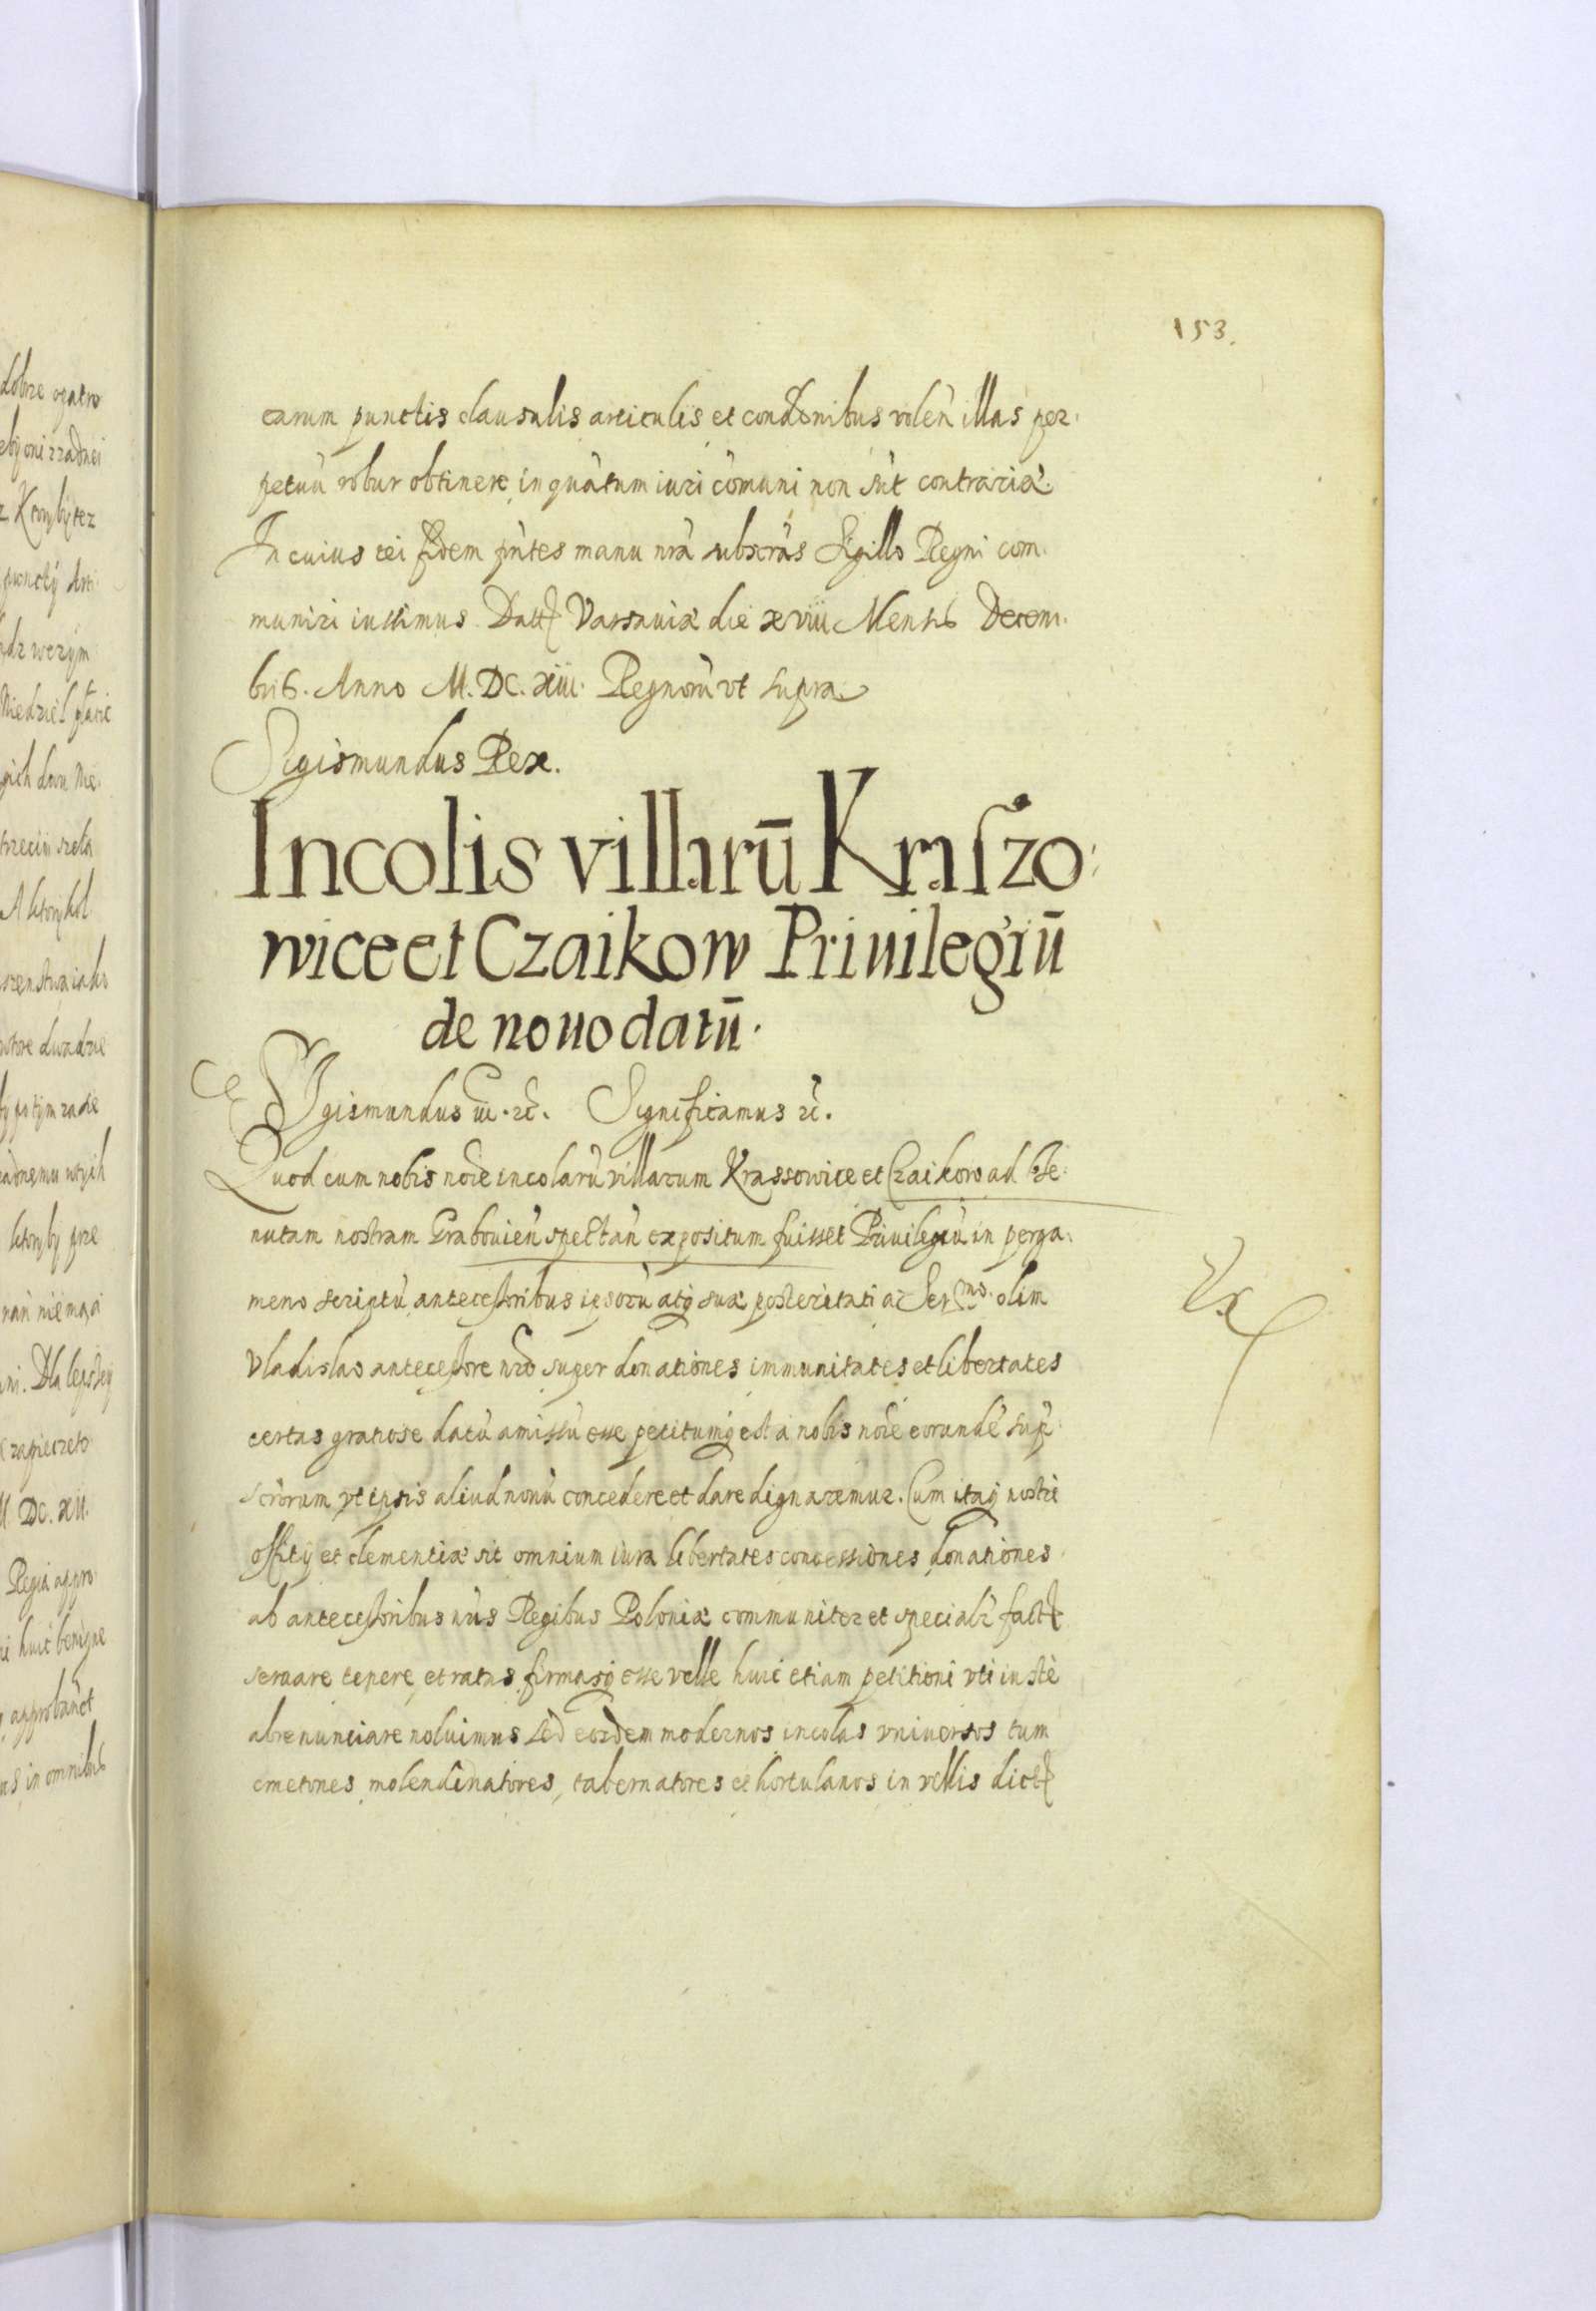 153.
earum punctis clausulis articulis et condõnibus voleñ illas per:
petuũ robur obtinere, in quãtum iuri cõmuni non sũt contrariæ.
In cuius rei fidem pñtes manu nrã subscrãs Sigillo Regni com:
muniri iussimus. Datt Varsauiæ die xviii Mensis Decem:
bris. Anno M.DC.XIII. Regnorũ vt supra.
Sigismundus Rex.
Incolis villarū Kraszo:
wice et Czaikow Priuilegiū
de nouo datū.
Sigismundus iii. etc. Significamus etc.
Quod cum nobis noīe incolarũ villarum Krassowice et Czaikow ad Te:
nutam nostram Grabouieñ spectañ expositum fuisset Priuilegiũ in perga:
meno scriptũ, antecessoribus ipsorũ atq suæ posteritati a Ser.mo olim
Vladislao antecessore nrõ super donationes immunitates et libertates
certas gratiose datũ amissũ esse petitumq est a nobis noīe eorundẽ sup
scrorum, vt ipsis aliud nouũ concedere et dare dignaremur. Cum itaq nostri
offitÿ et clementiæ sit omnium iura libertates concessiones, donationes
ab antecessoribus nrĩs Regibus Poloniæ communiter et specialr̃ fact
seruare tenere, et ratas firmasq esse velle huic etiam petitioni vti iustè
abrenunciare noluimus Sed eosdem modernos incolas vniuersos tum
cmetones, molendinatores, tabernatores et hortulanos in villis dict
dobrze opatro
Ktorzy byli tez
dwadzie
M. DC. XII.
Regia appro
huic benigne
approbañ et
in omnibus